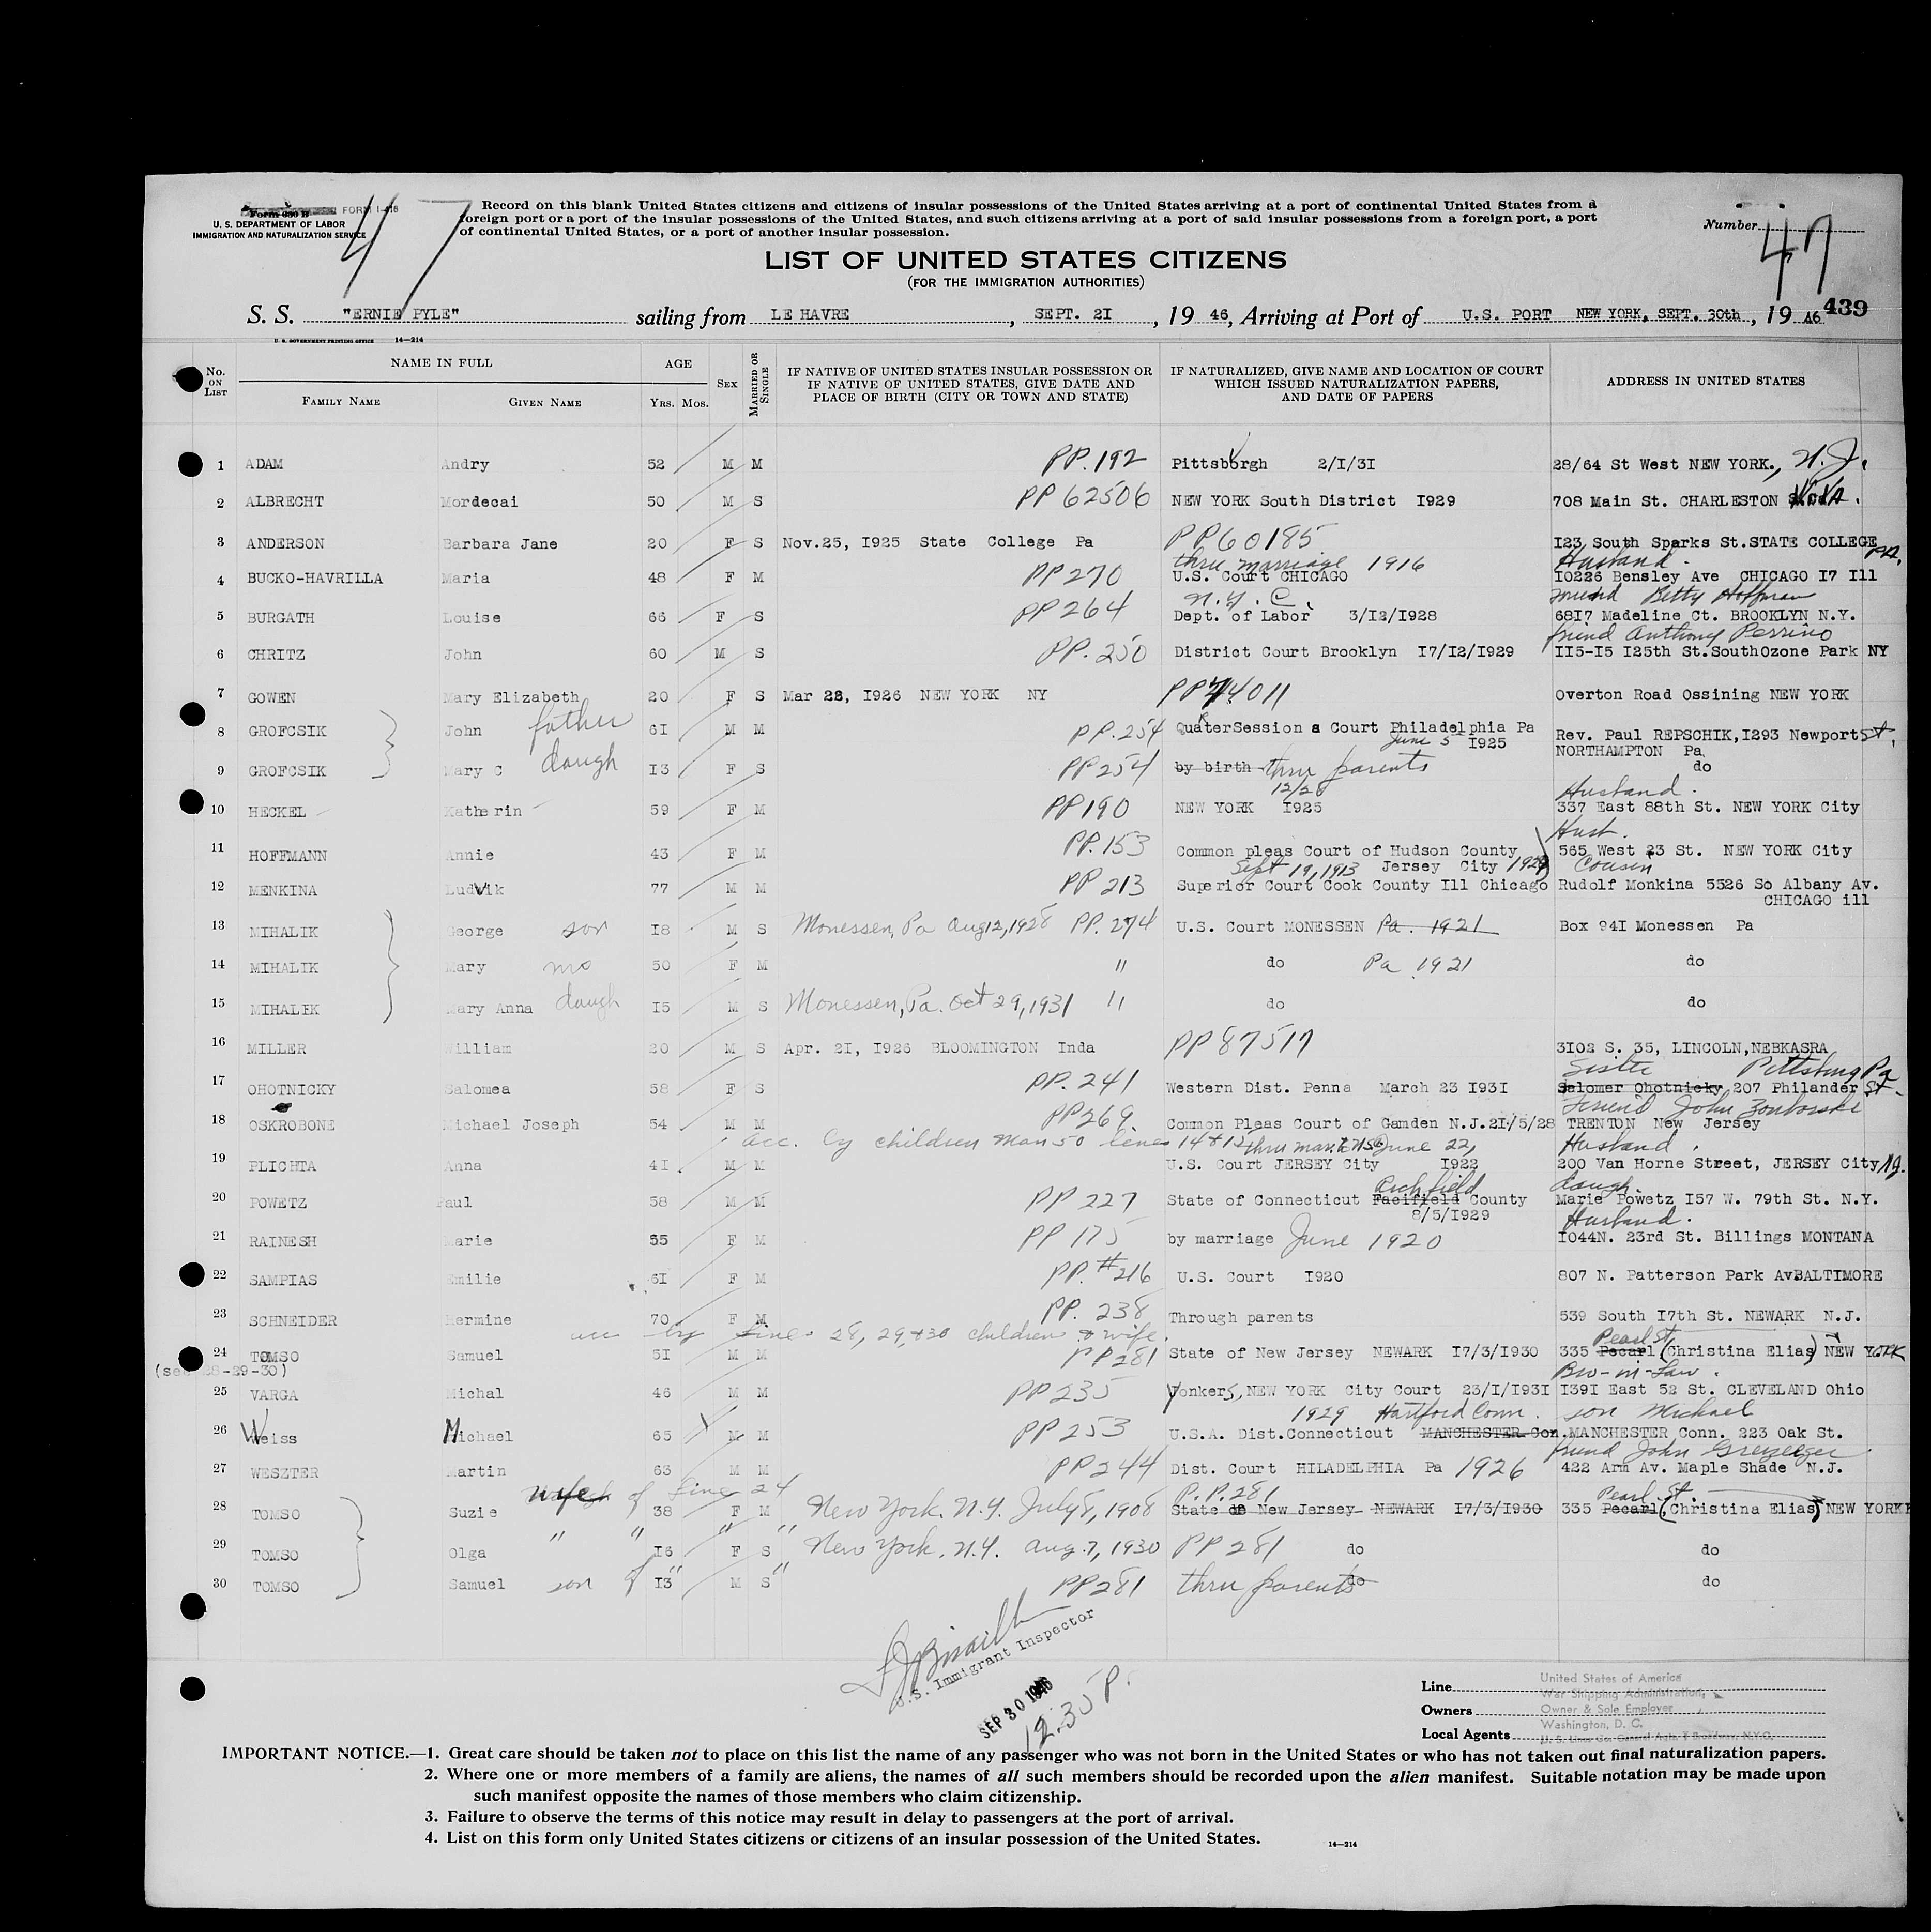 47
Form 630 B FORM I-416
U. S. DEPARTMENT OF LABOR
IMMIGRATION AND NATURALIZATION SERVICE
Record on this blank United States citizens and citizens of insular possessions of the United States arriving at a port of continental United States from a
foreign port or a port of the insular possessions of the United States, and such citizens arriving at a port of said insular possessions from a foreign port, a port
of continental United States, or a port of another insular possession.
Number 47
LIST OF UNITED STATES CITIZENS
(FOR THE IMMIGRATION AUTHORITIES)
439
S. S. "ERNIE PYLE" sailing from LE HAVRE, SEPT. 2I, 19 46, Arriving at Port of U.S. PORT NEW YORK, SEPT. 30th, 19 46
U. S. GOVERNMENT PRINTING OFFICE 14—214
No. ON LIST
NAME IN FULL
FAMILY NAME GIVEN NAME
AGE
YRS. MOS.
SEX
MARRIED OR SINGLE
IF NATIVE OF UNITED STATES INSULAR POSSESSION OR
IF NATIVE OF UNITED STATES, GIVE DATE AND
PLACE OF BIRTH (CITY OR TOWN AND STATE)
IF NATURALIZED, GIVE NAME AND LOCATION OF COURT
WHICH ISSUED NATURALIZATION PAPERS,
AND DATE OF PAPERS
ADDRESS IN UNITED STATES
1 ADAM Andry 52 M M PP.192 Pittsborgh 2/I/3I 28/64 St West NEW YORK., N.J.
2 ALBRECHT Mordecai 50 M S PP 62506 NEW YORK South District I929 708 Main St. CHARLESTON
3 ANDERSON Barbara Jane 20 F S Nov.25, I925 State College Pa PP60185 I23 South Sparks St.STATE COLLEGE PA.
thru marriage 1916 Husband.
4 BUCKO-HAVRILLA Maria 48 F M PP 270 U.S. Court CHICAGO I0226 Bensley Ave CHICAGO I7 Ill
N.Y.C. friend Betty Hoffman
5 BURGATH Louise 66 F S PP 264 Dept. of Labor 3/I2/I928 68I7 Madeline Ct. BROOKLYN N.Y.
friend Anthony Perrino
6 CHRITZ John 60 M S PP. 250 District Court Brooklyn I7/I2/I929 II5-I5 I25th St.SouthOzone Park NY
7 GOWEN Mary Elizabeth 20 F S Mar 28, I926 NEW YORK NY PP74011 Overton Road Ossining NEW YORK
8 GROFCSIK John father 6I M M PP.254 QuaterSession s Court Philadelphia Pa Rev. Paul REPSCHIK,I293 Newport St.
June 5 I925 NORTHAMPTON Pa.
9 GROFCSIK Mary C daugh I3 F S PP254 by birth thru parents do
12/28 Husband.
10 HECKEL Katherin 59 F M PP190 NEW YORK I925 337 East 88th St. NEW YORK City
Hust.
11 HOFFMANN Annie 43 F M PP.153 Common pleas Court of Hudson County 565 West 23 St. NEW YORK City
Sept 19, 1913 Jersey City 1929 Cousin
12 MENKINA Ludvik 77 M M PP 213 Superior Court Cook County Ill Chicago Rudolf Monkina 5526 So Albany Av.
CHICAGO ill
13 MIHALIK George son I8 M S Monessen, Pa Aug 12, 1928 PP. 274 U.S. Court MONESSEN Pa. 1921 Box 94I Monessen Pa
14 MIHALIK Mary mo 50 F M " do Pa 1921 do
15 MIHALIK Mary Anna daugh I5 M S Monessen, Pa. Oct 29, 1931 " do do
16 MILLER William 20 M S Apr. 2I, I926 BLOOMINGTON Inda PP87517 3I02 S. 35, LINCOLN,NEBKASRA
Sister Pittsburg Pa
17 OHOTNICKY Salomea 58 F S PP. 241 Western Dist. Penna March 23 I93I Salomer Ohotnicky 207 Philander St.
Friend John
18 OSKROBONE Michael Joseph 54 M M PP269 Common Pleas Court of Gamden N.J.2I/5/28 TRENTON New Jersey
acc. by children man 50 lines 14 + 15 thru mar. June 22, Husband.
19 PLICHTA Anna 4I M M U.S. Court JERSEY City I922 200 Van Horne Street, JERSEY City NJ.
daugh.
20 POWETZ Paul 58 M M PP 227 State of Connecticut Facifield County Marie Powetz I57 W. 79th St. N.Y.
8/5/I929 Husband.
21 RAINESH Marie 55 F M PP 175 by marriage June 1920 I044N. 23rd St. Billings MONTANA
22 SAMPIAS Emilie 6I F M PP.#216 U.S. Court I920 807 N. Patterson Park AvBALTIMORE
23 SCHNEIDER Hermine 70 F M PP. 238 Through parents 539 South I7th St. NEWARK N.J.
acc by lines 28, 29, +30 children & wife. Pearl St
24 TOMSO Samuel 5I M M PP281 State of New Jersey NEWARK I7/3/I930 335 Pecarl (Christina Elias) NEW YORK
(see 28-29-30) Bro-in-Law.
25 VARGA Michal 46 M M PP235 Yonkers, NEW YORK City Court 23/I/I93I I39I East 52 St. CLEVELAND Ohio
1929 Hartford Conn. son Michael
26 Weiss Michael 65 M M PP253 U.S.A. Dist.Connecticut MANCHESTER Con. MANCHESTER Conn. 223 Oak St.
friend John
27 WESZTER Martin 63 M M PP244 Dist. Court HILADELPHIA Pa 1926 422 Arm Av. Maple Shade N.J.
wife of line 24 P.P.281 Pearl St.
28 TOMSO Suzie 38 F M New York. N.Y. July 8, 1908 State de New Jersey NEWARK I7/3/I930 335 Pecarl (Christina Elias) NEW YORK
29 TOMSO Olga " " I6 F S New York, N.Y. Aug. 7, 1930 PP281 do do
30 TOMSO Samuel son of " I3 M S PP281 thru parents do do
U.S. Immigrant Inspector
SEP 30 1946
12.35 P.
Line United States of America
War Shipping Administration
Owners Owner & Sole Employer
Washington, D. C.
Local Agents
IMPORTANT NOTICE.—1. Great care should be taken not to place on this list the name of any passenger who was not born in the United States or who has not taken out final naturalization papers.
2. Where one or more members of a family are aliens, the names of all such members should be recorded upon the alien manifest. Suitable notation may be made upon
such manifest opposite the names of those members who claim citizenship.
3. Failure to observe the terms of this notice may result in delay to passengers at the port of arrival.
4. List on this form only United States citizens or citizens of an insular possession of the United States.
14—214